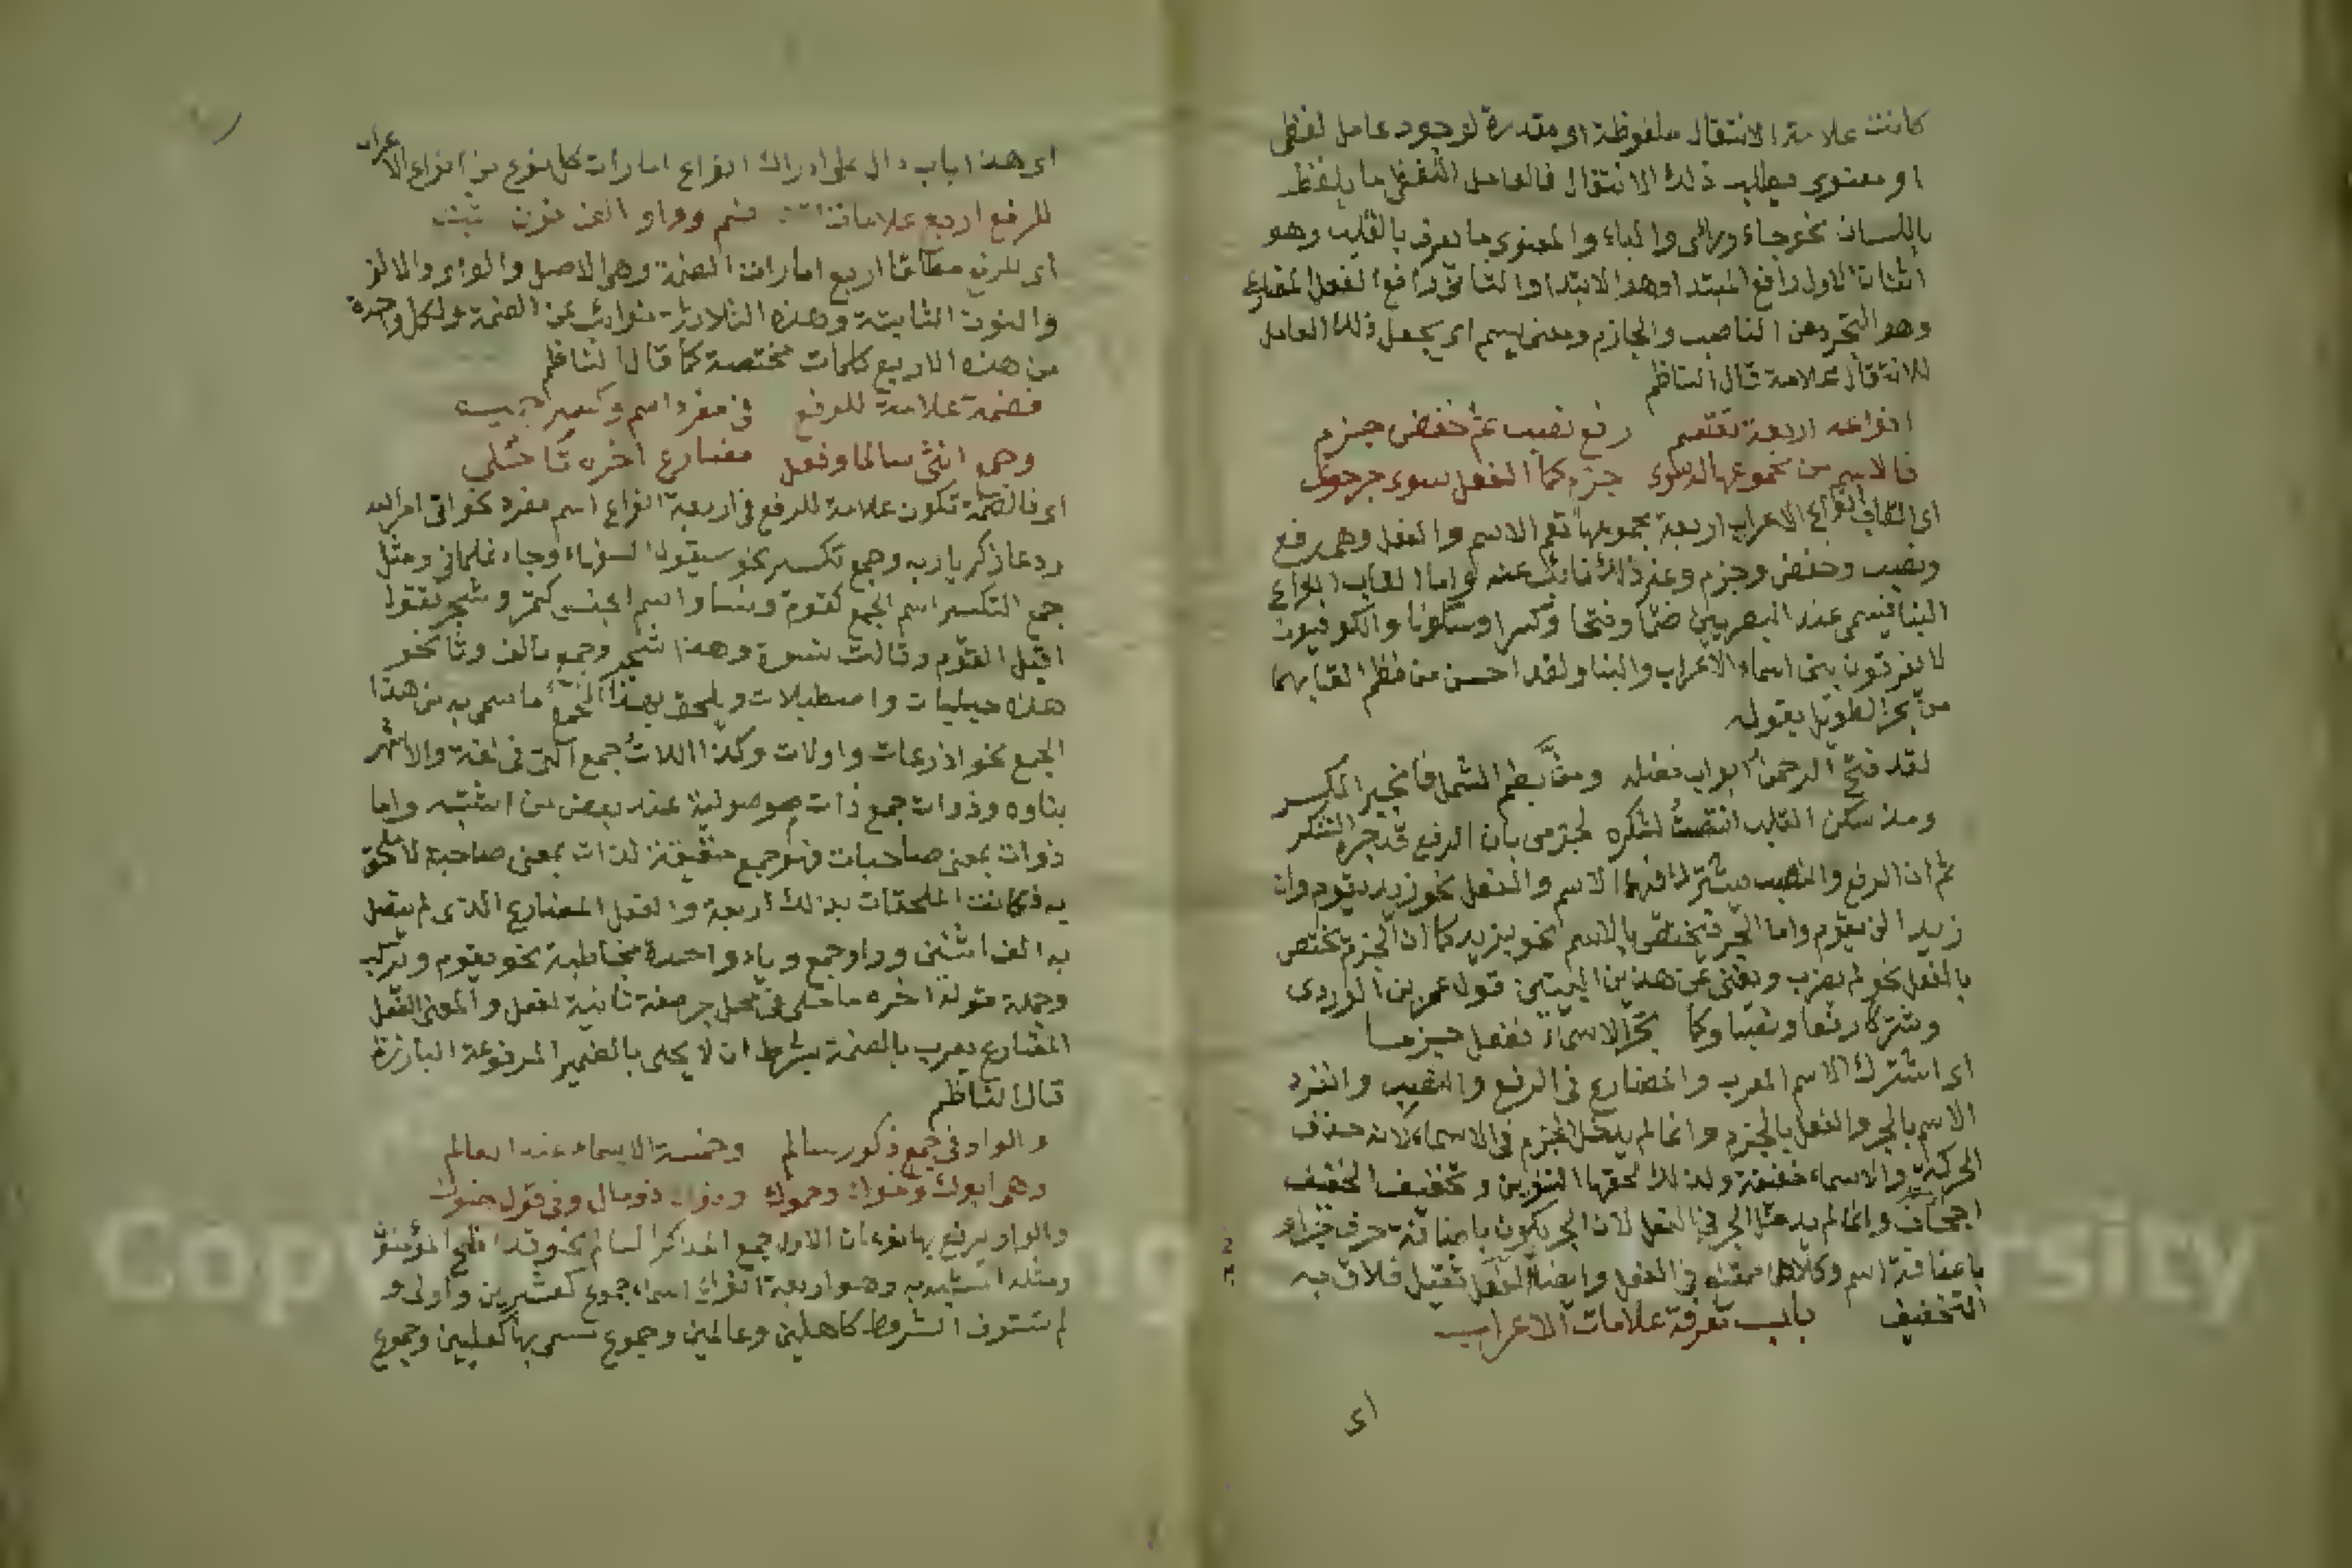 كانت علامة الانتقال ملفوظة او مقدرة لوجود عامل لفظي
او معنوي يطلب ذلك الانتقال فالعامل اللفظي ما يلفظ
باللسان نحو جاء وراى والباء والمعنوي ما يعرف بالقلب وهو
اثنان الاول رافع المبتدا وهو الابتدا والثاني رافع الفعل المضارع
وهو التجرد من الناصب والجازم ومعنى يسم اى يجعل ذلك العامل
للانتقال علامة قال الناظم
انواعه اربعة تقتسم رفع نصب ثم خفض جزم
فالاسم من مجموعها الدسوى جزم كما الفعل سوى جر حوى
اى القاب انواع الاعراب اربعة مجموعها تعم الاسم والفعل وهى رفع
ونصب وخفض وجزم وغير ذلك نائب عنه واما القاب انواع
البنا فيسمى عند البصريين ضما وفتحا وكسرا وسكونا والكوفيون
لا يفرقون بين اسماء الاعراب والبنا ولقد احسن من نظم القابهما
من بحر الطويل بقوله
لقد فتح الرحمن ابواب فضله ومن بضم الشمل فانجبر الكسر
ومذ سكن القلب انتصبت لشكره لجزمى بان الرفع قد جره الشكر
ثم ان الرفع والنصب يشترك فيهما الاسم والفعل نحو زيد يقوم وان
زيدا لن يقوم واما الجر فيختص بالاسم نحو بزيد كما ان الجزم يختص
بالفعل نحو لم يضرب ويغنى عن هذين البيتين قول عمر بن الوردى
وشتركا رفعا ونصبا وكما بجر الاسماء لفعل جزما
اى اشترك الاسم المعرب والمضارع فى الرفع والنصب وانفرد
الاسم بالجر والفعل بالجزم وانما لم يدخل الجزم فى الاسماء لانه حذف
الحركة والاسماء خفيفة ولذلك لحقها التنوين وتخفيف الخفيف
اجحاف وانما لم يدخل الجر فى الفعل لان الجر يكون باضافة حرف جر او
باضافة اسم وكلاهما ممتنع فى الفعل وايضا الفعل ثقيل فلاق به
التخفيف باب تفرقة علامات الاعراب
اى
اى هذا باب دال على ادراك انواع امارات كل نوع من انواع الاعراب
للرفع اربع علامات ضم وواو الف نون
اى للرفع مطلقا اربع امارات الضمة وهى الاصل والواو والالف
والنون الثابتة وهذه الثلاثة نوائب عن الضمة ولكل واحدة
من هذه الاربع كلمات مختصة كما قال الناظم
فضمة علامة للرفع فى مفرد اسم وكسير جمع
وجمع انثى سالما وفعل مضارع اخره تا خلى
اى فالضمة تكون علامة للرفع فى اربعة انواع اسم مفرد نحو اتى امر الله
ودعا زكريا ربه وجمع تكسير نحو سيقول السفهاء وجاء غلمانى ومثل
جمع التكسير اسم الجمع كقوم ونسا واسم الجنس كتمر وشجر بقول
اقبل القوم وقالت نسوة وهذا شجر وجمع بالف وتا نحو
هذه حبليات واصطبلات ويلحق بهذا الجمع ما سمى به من هذا
الجمع نحو اذرعات واولات وكذا اللات جمع التى فى لغة والاشهر
بناوه وذوات جمع ذات موصولية عند بعض من اثبته واما
ذوات بمعنى صاحبات فهو جمع حقيقة لذات بمعنى صاحبة لا ملحق
به فكانت الملحقات بذلك اربعة والفعل المضارع الذى لم يتصل
به الف اثنين وواو جمع وياء واحدة مخاطبة نحو يقوم وتركب
وجملة قوله اخره ما خلى فى محل جر صفة ثانية لفعل والمعنى الفعل
المضارع يعرب بالضمة بشرط ان لا يحلى بالضمير المرفوعة البارزة
قال الناظم
والواو فى جمع ذكور سالم وخمسة الاسماء عند العالم
وهى ابوك وفوك وحموك ذو مال وفى قول هنوك
والواو يرفع بها نوعان الاول جمع المذكر السالم نحو قد افلح المؤمنون
ومثله الشبيه به وهو اربعة انواع اسماء جموع كعشرين واولى و
لم تستوف الشروط كاهلين وعالمين وجموع تسمى بها كعليين وجموع
Copyright © King Saud University